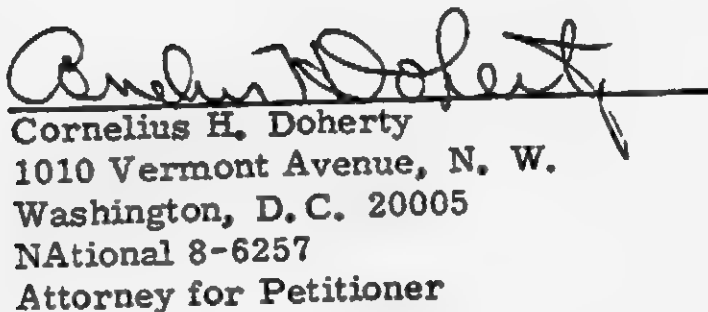 Cornelius H. Doherty
Cornelius H. Doherty
1010 Vermont Avenue, N. W.
Washington, D. C. 20005
NAtional 8-6257
Attorney for Petitioner